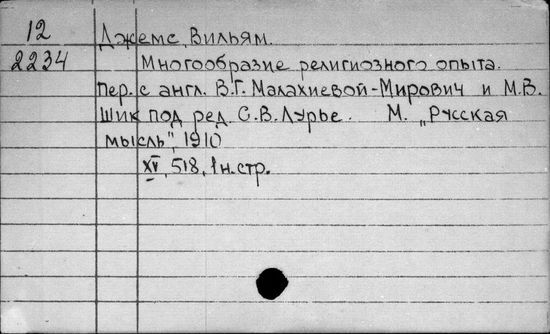 12
2234
Джемс, Вильям.
Многообразие религиозного опыта.
пер. с англ. В.Г. Малахиевой-Мирович и М.В.
Шик под ред. С.В. Лурье. М. „Русская
мысль", 1910
XV, 518, 1 н. стр.